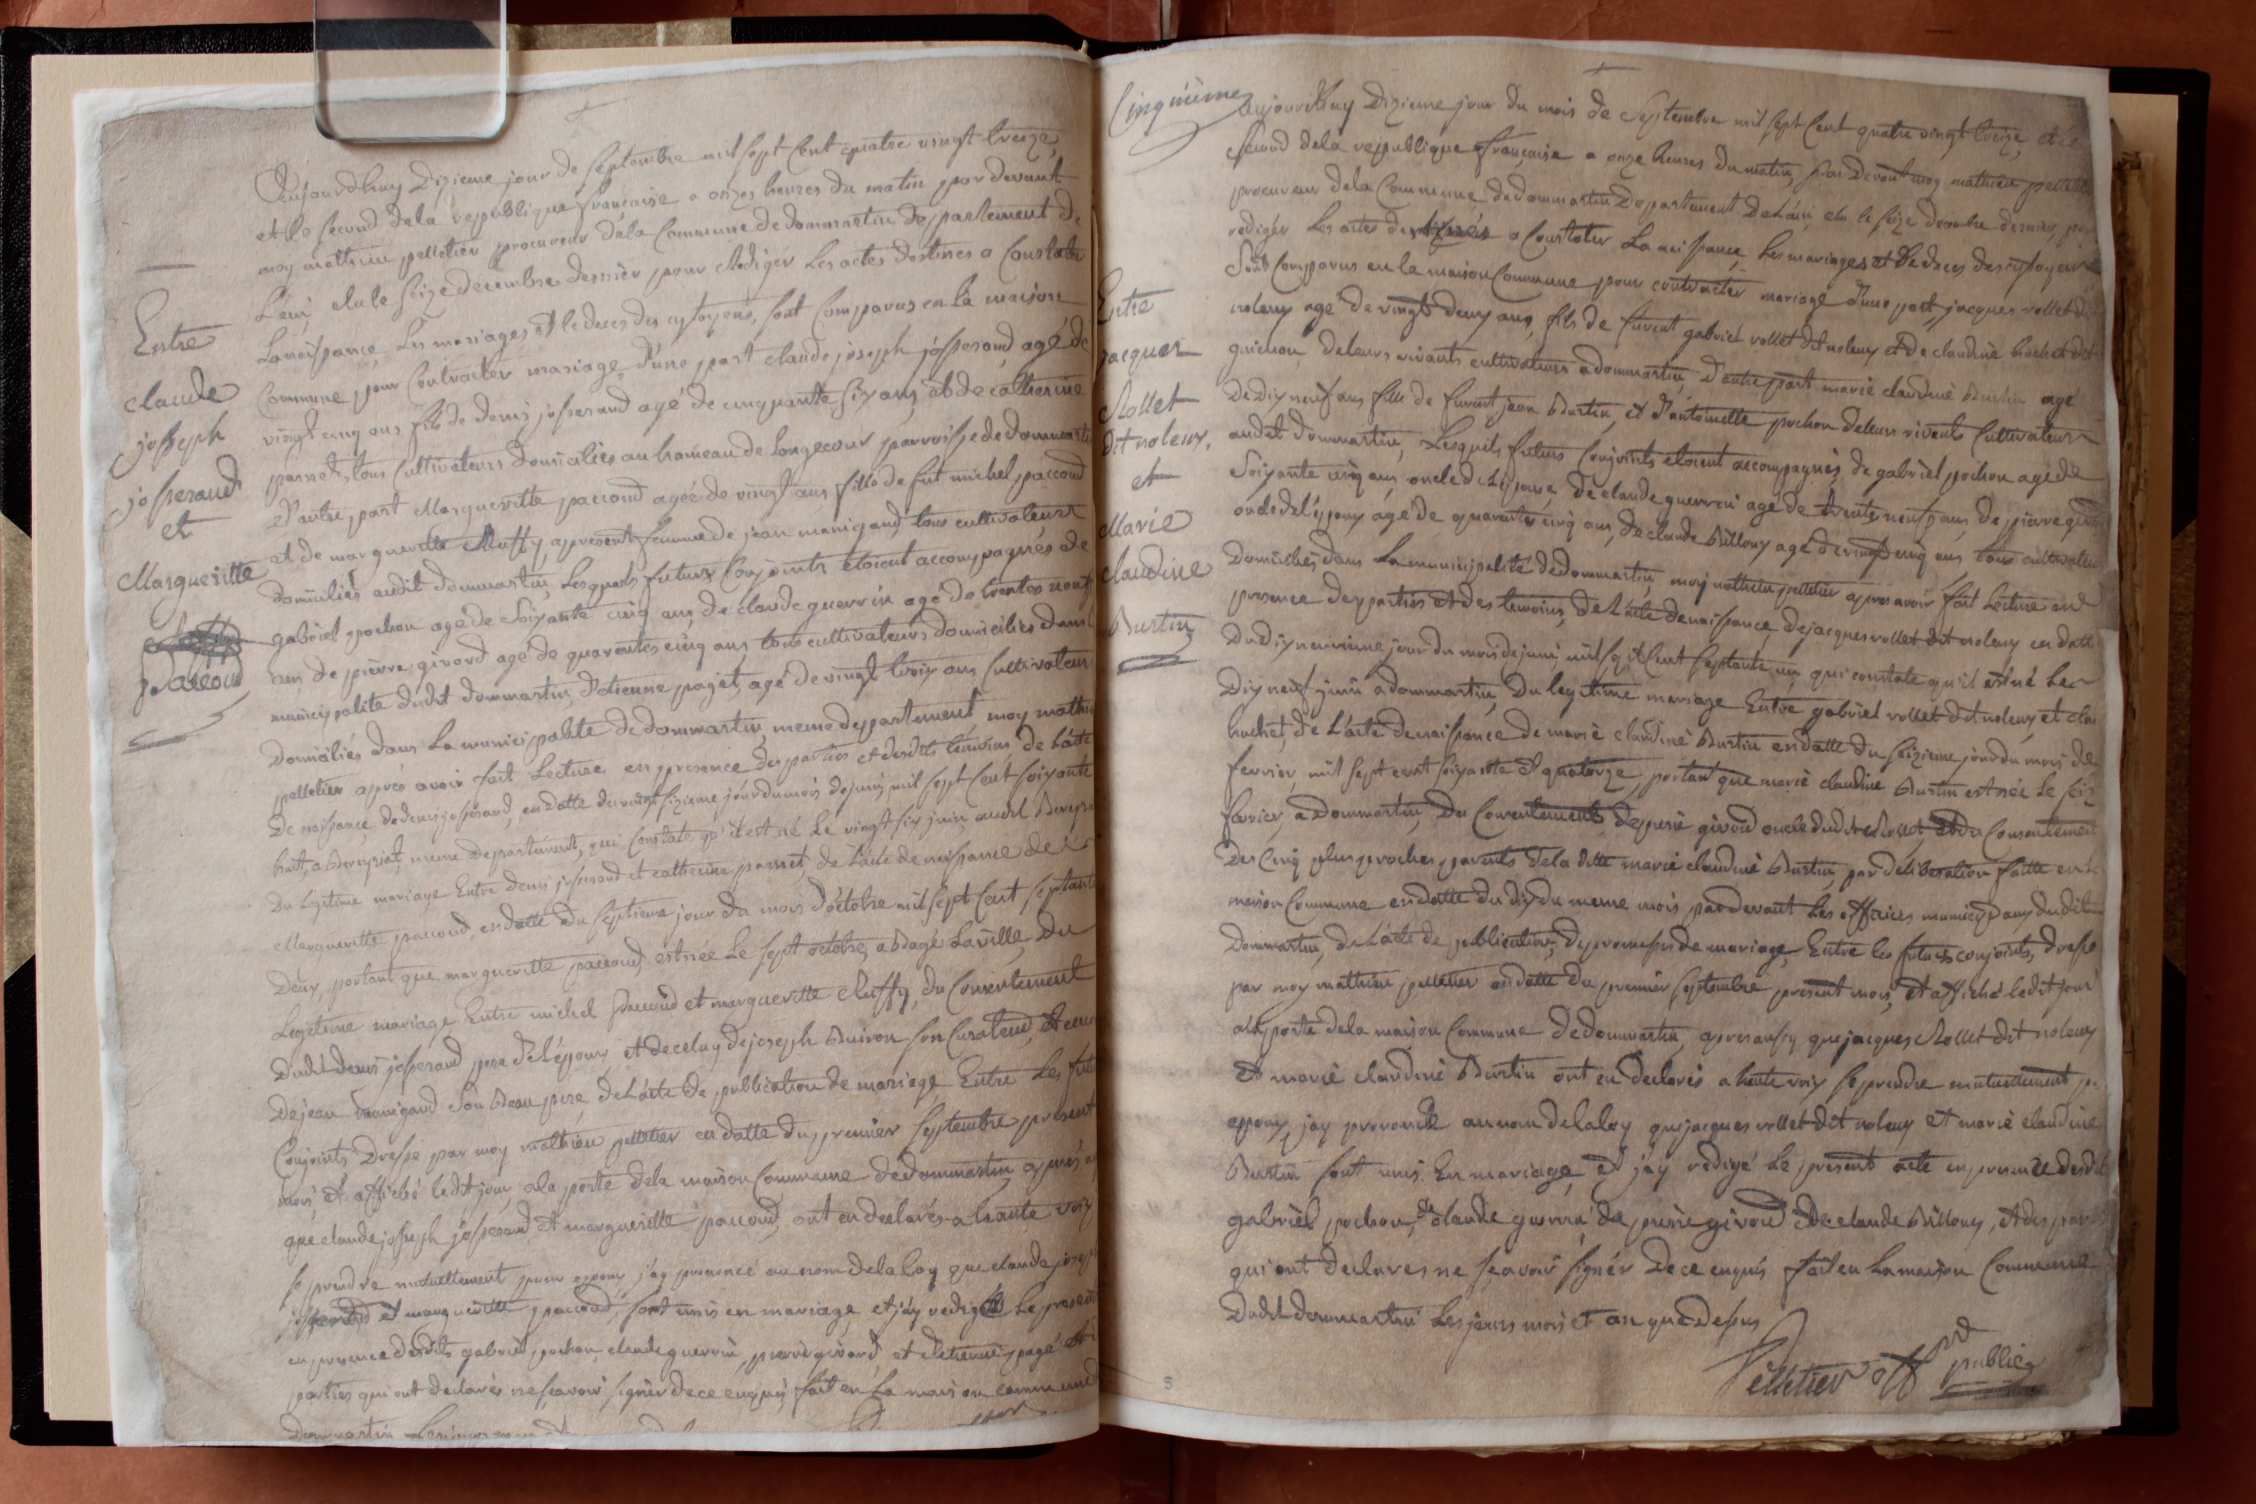 Entre
claude
joseph
josserand
et
Margueritte
paccoud
Aujourdhuy Dizieme jour de septembre mil sept Cent quatre vingt treize,
et le second dela republique francaise a onzes heures du matin par devant
moy mathieu pelletier procureur dela Commune de dommartin departement de
L'ain, elu le seize decembre dernier pour Rediger Les actes destines a Constater
La naissance, Les mariages et le deces des cytoyens, sont Comparus en la maison
Commune pour Contracter mariage, d'une part claude joseph josserand, agé de
vingt cinq ans fils de denis josserand agé de cinquante six ans, et de catherine
parret, tous Cultivateurs domiciliés au hameau de Longecour parroisse de dommartin
D'autre part Margueritte paccoud agée de vingt ans fille de fut michel paccoud
et de margueritte Chuffy, apresent femme de jean manigand, tous cultivateurs
domiciliés audit dommartin, Lesquels futurs Conjoints étoient accompagnés de
gabriel pochon agé de soixante cinq ans, de claude guerrin agé de trente neuf
ans de pierre givord agé de quarentes cinq ans tous cultivateurs domiciliés dans la
municipalité dudit dommartin, d'etienne paget, agé de vingt troix ans Cultivateur
Domiciliés dans La municipalité de dommartin meme departement moy mathieu
pelletier après avoir fait Lecture en presence des parties et desdits temoins, de L'acte
De naissance de denis josserand, en datte du vingt sizieme jour du mois de juin mil sept Cent soixante
huit, a Bereyziat, meme Departement, qui Constate qu'il est né Le vingt six juin audit Bereyziat
Du Legitime mariage Entre denis josserand et catherine parret, de L'acte de naissance de
Marguerite paccoud, en datte du septieme jour du mois d'octobre mil sept Cent septante
Deux, portant que marguerite paccoud est née Le sept octobre, a Bagé La ville, Du
Legitime mariage Entre michel paccoud et marguerite Chuffy, du Consentement
Dudit denis josserand pere de L'époux, et de celuy de joseph Buiron son Curateur, et
De jean manigand son Beau pere, de L'acte de publication de mariage Entre Les futurs
Conjoints Dressé par moy mathieu pelletier en datte du premier septembre present
mois, et affiché ledit jour, a la porte dela maison Commune de dommartin apres
que claude joseph josserand et marguerite paccoud, ont eu declarés a haute voix
se prendre mutuellement pour epoux, j'ay prononcé au nom de la Loy que claude joseph
josserand et marguerite paccoud, sont unis en mariage et j'ay redigé Le present
en presence desdits gabriel pochon, claude guerrin, pierre givord, et d'etienne paget et
parties qui ont declarés ne scavoir signer de ce enquis, fait en La maison commune
Dommartin
Cinquieme
Entre
jacques
Rollet
dit noleux,
et
Marie
claudine
Burtin
Aujourdhuy Dizieme jour du mois de Septembre mil sept Cent quatre vingt treize, et le
second dela republique francaise a onze heures du matin, par devant moy mathieu pelletier
procureur dela Commune de dommartin Departement de L'ain, elu le seize decembre dernier, pour
rediger Les actes destinés a Constater La naissance, Les mariages et le deces des cytoyens
Sont Comparus en la maison Commune pour contracter mariage d'une part, jacques rollet dit
noleux agé de vingt deux ans, fils de furent gabriel rollet dit noleux et de claudine brochet dit
guichon deleurs vivants cultivateurs a dommartin, D'autre part marie claudine Burtin agé
De Dix neuf ans fille de furent jean Burtin, et d'antoinette pochon deleurs vivants Cultivateurs
audit dommartin, Lesquels futurs Conjoints étoient accompagnés de gabriel pochon agé de
soixante cinq ans, oncle de L'epouse, de claude guerrin agé de trente neuf ans, de pierre givord
oncle de L'époux agé de quarente cinq ans, de claude Billoux agé de vingt cinq ans tous cultivateurs
Domiciliés dans La municipalité de dommartin, moy mathieu pelletier apres avoir fait Lecture en
presence des parties et des temoins, de L'acte de naissance de jacques rollet dit noleux en datte
Du dix neuvieme jour du mois de juin mil sept Cent septante un, qui constate qu'il est né Le
Dix neuf juin a dommartin, Du legitime mariage Entre gabriel rollet dit noleux, et
brochet, de L'acte de naissance de marie claudine Burtin en datte du seizieme jour du mois de
fevrier, mil sept cent soixante et quatorze, portant que marie claudine Burtin est née Le seize
fevrier, a Dommartin, Du Consentement de pierre givord oncle dudit Rollet, et du Consentement
Des Cinq plus proches parents dela ditte marie claudine Burtin, par deliberation faitte en la
maison Commune en datte du dix du meme mois par devant Les officiers municipaux dudit
Dommartin, de L'acte de publication, de promesses de mariage, Entre les futurs conjoints, dressé
par moy mathieu pelletier en datte du premier septembre present mois, et affiché ledit jour
a la porte dela maison Commune De dommartin, apres aussy que jacques Rollet dit noleux
et marie claudine Burtin ont eu declarés a haute voix se prendre mutuellement pour
epoux, j'ay prononcé au nom de la loy que jacques rollet dit noleux et marie claudine
Burtin sont unis En mariage, et j'ay redigé Le present acte en presence desdits
gabriel pochon, de claude guerrin de pierre givord de claude Billoux, et des parties
qui ont declares ne scavoir signer De ce enquis fait en La maison Commune
Dudit dommartin Les jours mois et an que Dessus
Pelletier off public
5